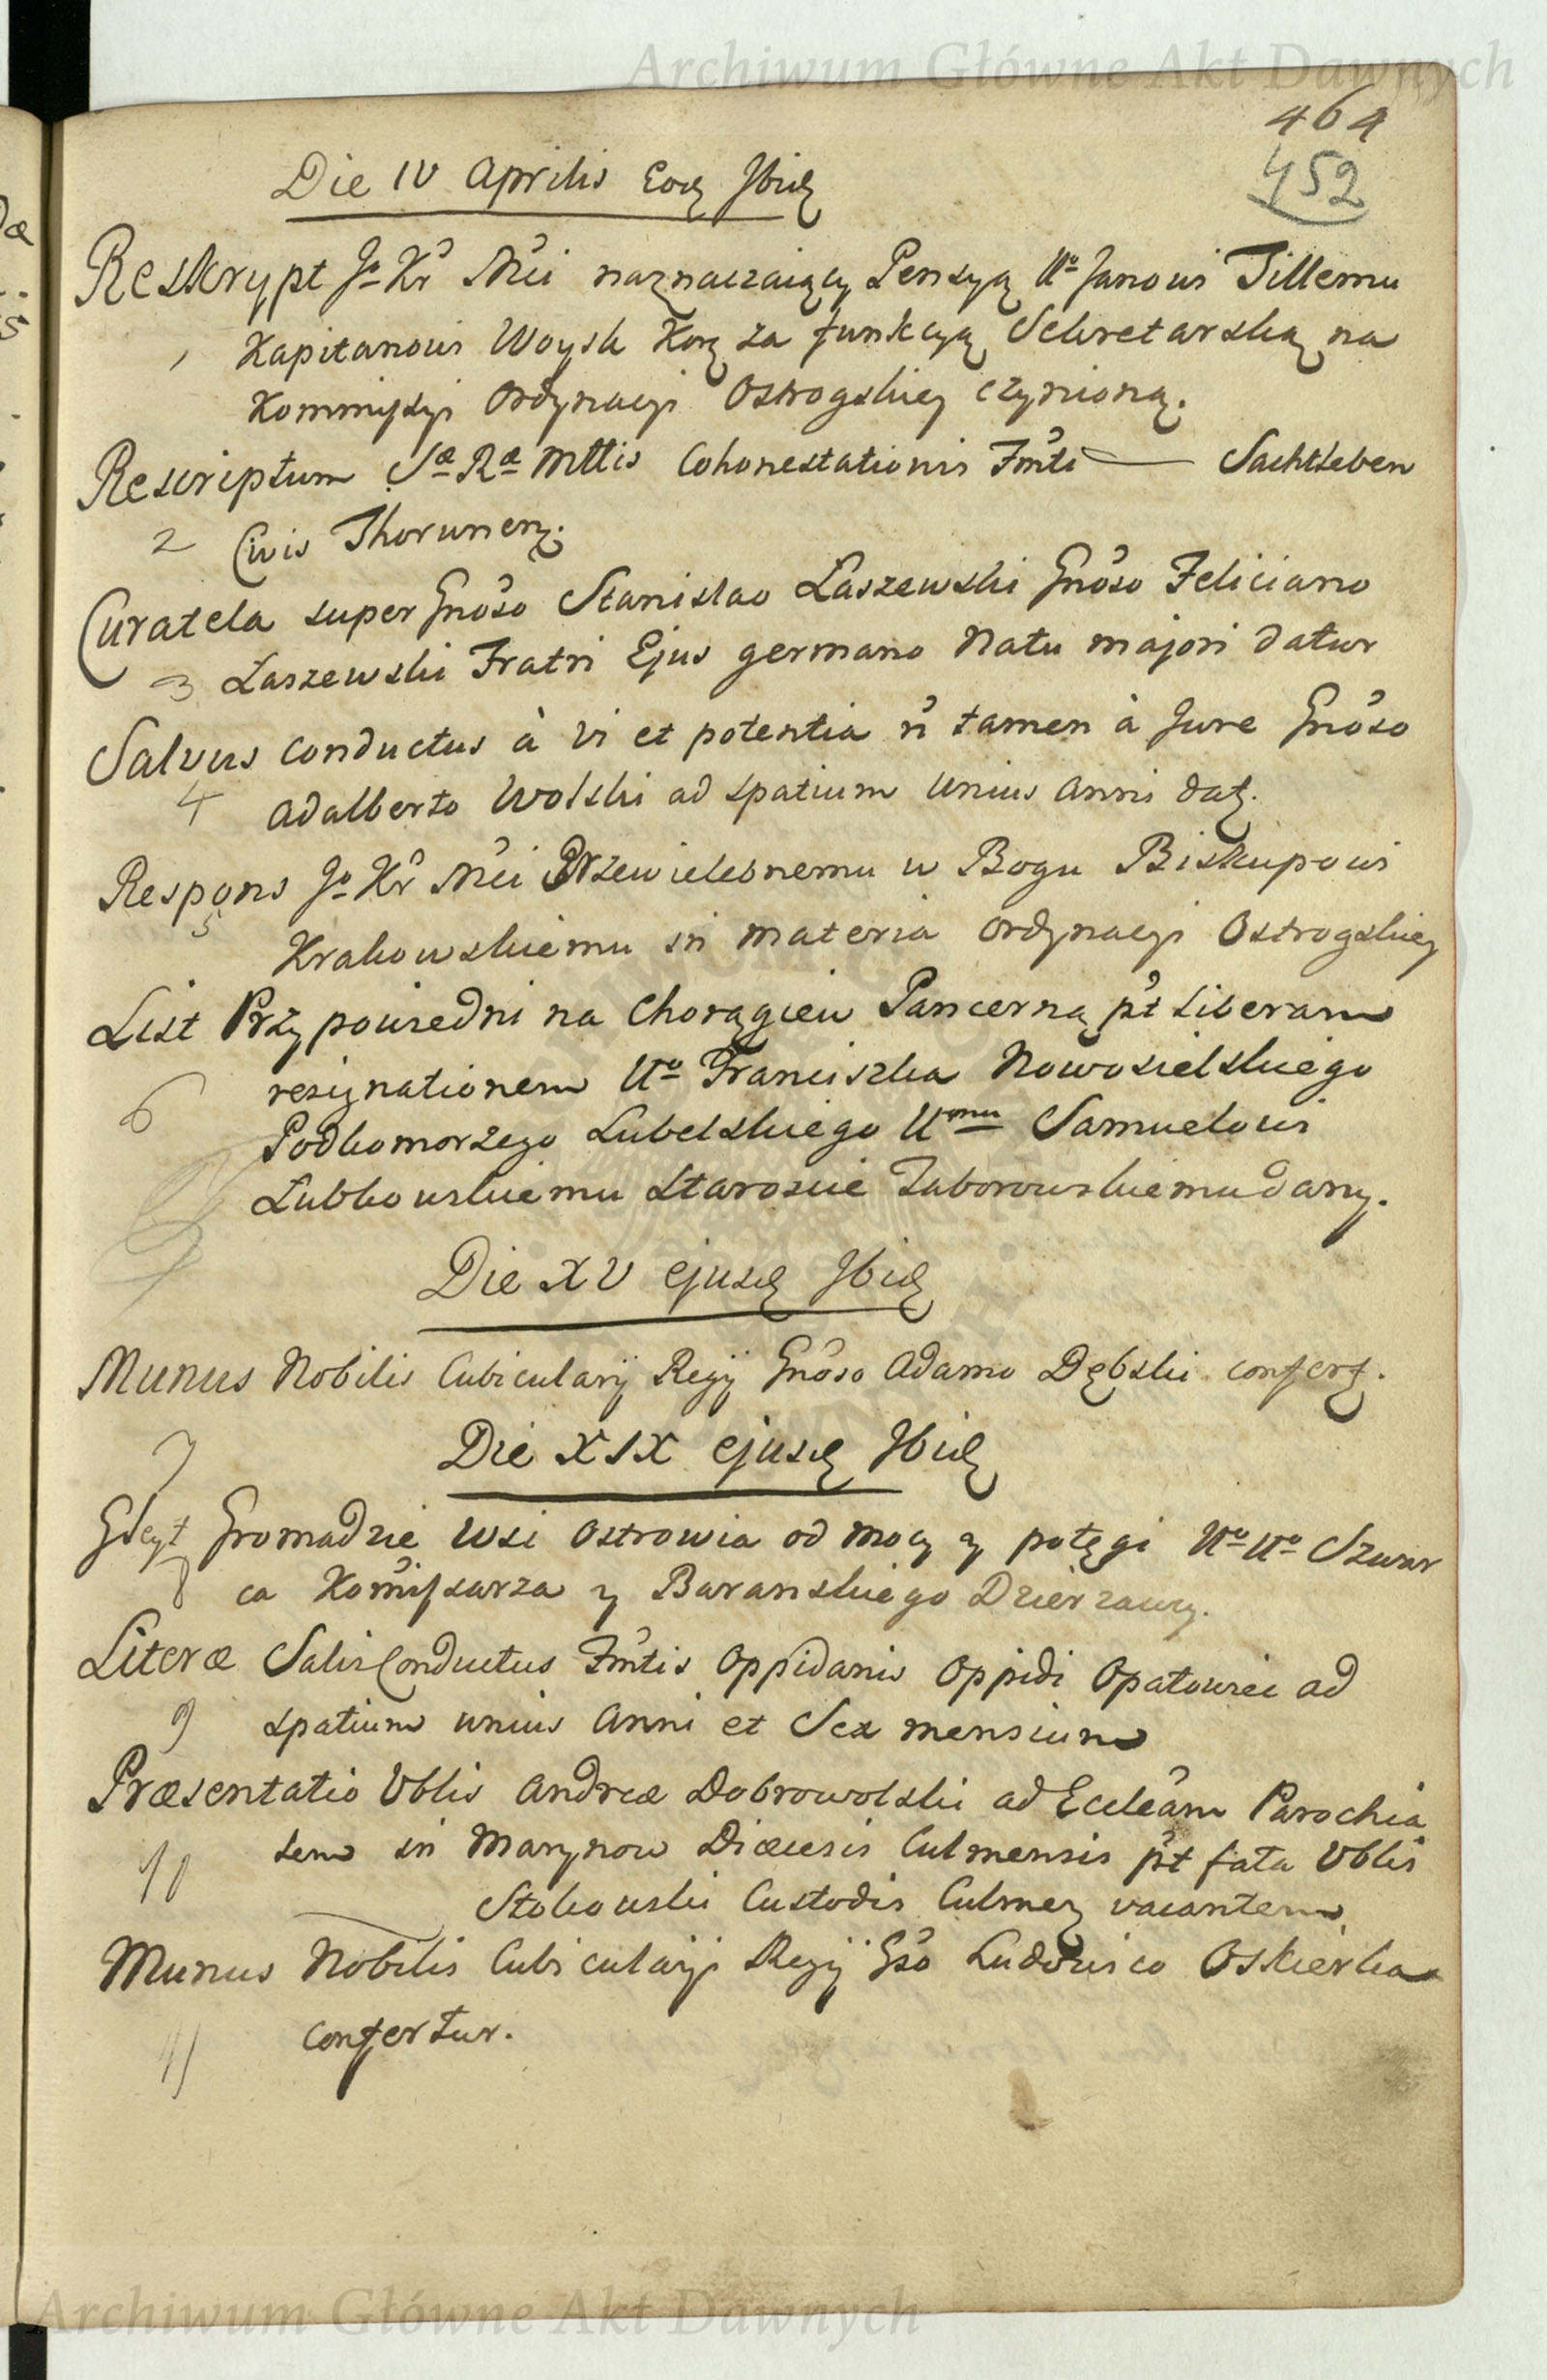 Archiwum Główne Akt Dawnych
464
452
Die IV Aprilis Eođ Ibiđ
Reskrypt Jo Kr Mci naznaczaiący Pensyą Uo Janowi Tillemu
1 Kapitanowi Woysk Kor za funkcyą Sekretarską na
Kommissyi Ordynacyi Ostrogskiey czynioną.
Rescriptum Sæ Ræ Mttis Cohonestationis Fmti — Sachtleben
2 Civis Thorunen.
Curatela super Gnoso Stanislao Laszewski Gnoso Feliciano
3 Laszewski Fratri Ejus germano Natu majori datur
Salvus Conductus à vi et potentia n tamen à Jure Gnoso
4 Adalberto Wolski ad spatium Unius Anni dat.
Respons Jo Kr Mci Przewielebnemu w Bogu Biskupowi
5 Krakowskiemu in materia Ordynacyi Ostrogskiey
List Przypowiedni na Chorągiew Pancerną pt liberam
resignationem Uo Franciszka Nowosielskiego
6 Podkomorzego Lubelskiego Umu Samuelowi
Łubkowskiemu Staroscie Taborowskiemu dany.
Die XV ejusđ Ibiđ
Munus Nobilis Cubicularij Regij Gnoso Adamo Dębski confert.
7
Die XIX ejusđ Ibiđ
Gleyt Gromadzie Wsi Ostrowia od mocy y potęgi Uo Uo Szwar
8 ca Kommissarza y Baranskiego Dzierzawcy.
Literæ Salvi Conductus Fmtis Oppidanis Oppidi Opatowiec ad
9 spatium unius Anni et Sex mensium
Præsentatio Vblis Andreæ Dobrowolski ad Eccleam Parochia
10 lem in Marynow Diæcesis Culmensis pt fata Vblis
Stokowski Custodis Culmen vacantem
Munus Nobilis Cubicularij Regij Gso Ludovico Oskierka
11 confertur.
Archiwum Główne Akt Dawnych